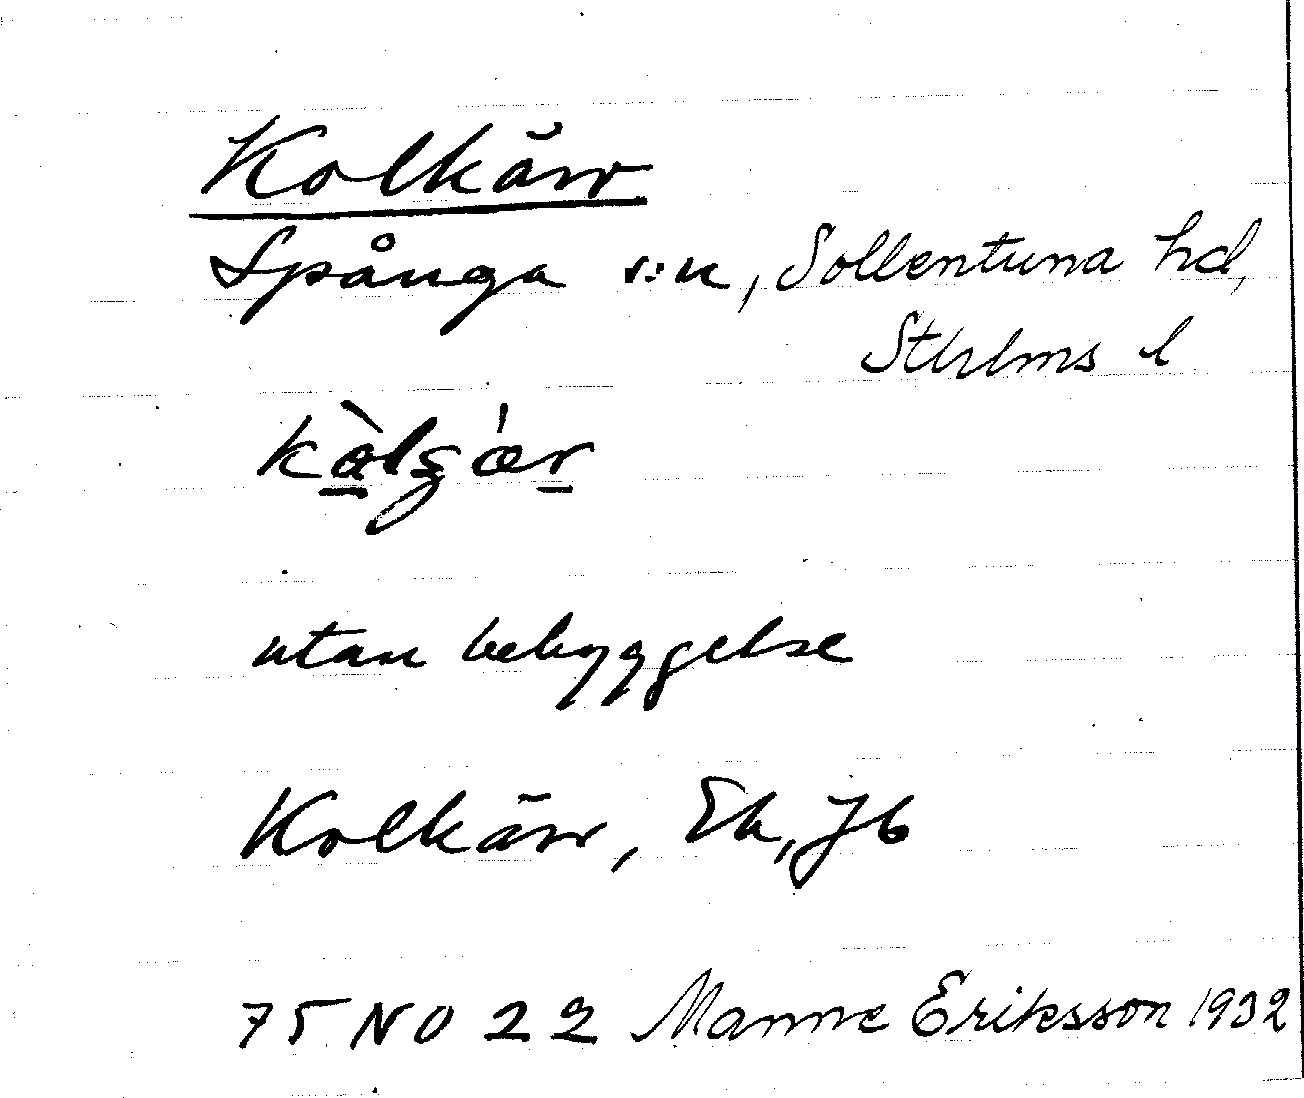 Kolkärr
Spånga s:n, Sollentuna hd,
Sthlms l
utan bebyggelse
Kolkärr, Ek, Jb
75 NO 22 Manne Eriksson 1932